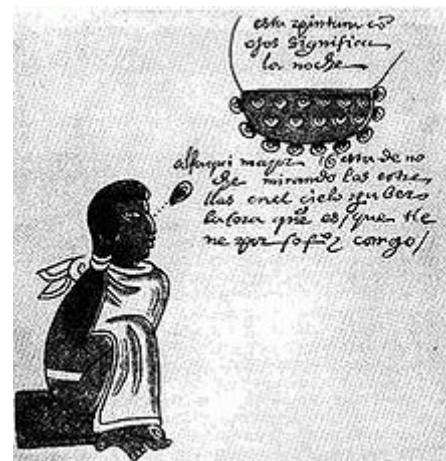 esta pintura cō
ojos significa
la noche
alfaqui mayor q̄ esta de no
che mirando las estre
llas en el cielo y a ber
la ora que es / que tie
ne por ofi° y cargo /